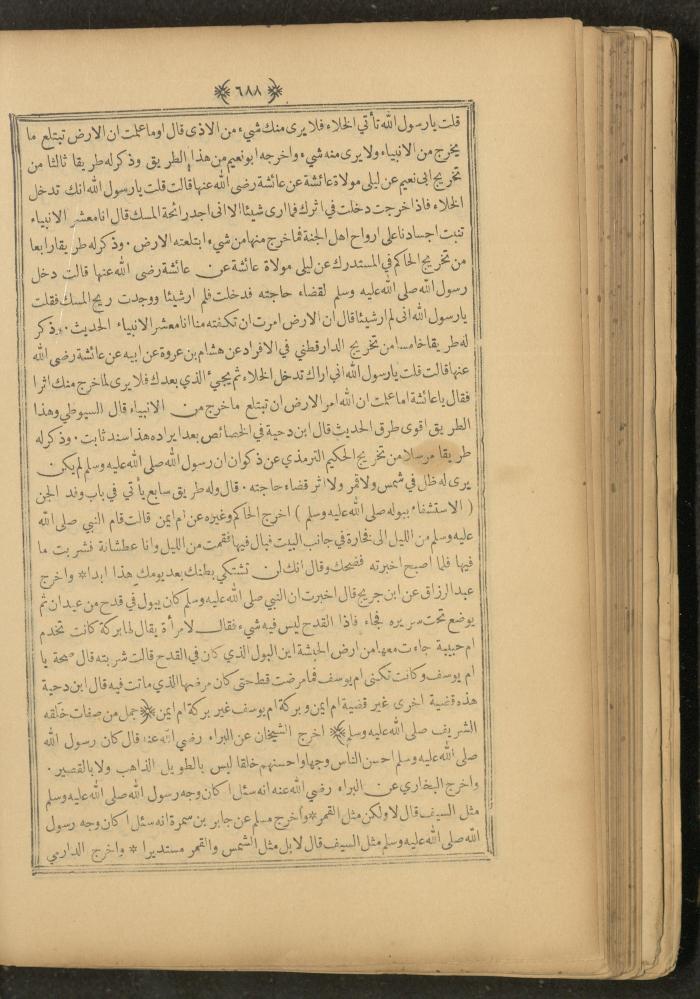 ٦٨٨
قلت يارسول الله تأتي الخلاء فلا يرى منك شيء من الاذى قال اوما علمت ان الارض تبتلع ما
يخرج من الانبياء ولا يرى منه شيء واخرجه ابو نعيم من هذا الطريق وذكر له طريقا ثالثا من
تخريج ابى نعيم عن ليلى مولاة عائشة عن عائشة رضى الله عنها قالت قلت يارسول الله انك تدخل
الخلاء فاذا خرجت دخلت في اثرك فما ارى شيئا الا انى اجد رائحة المسك قال انا معشر الانبياء
تنبت اجسادنا على ارواح اهل الجنة فما خرج منها من شيء ابتلعته الارض ٠ وذكر له طريقا رابعا
من تخريج الحاكم في المستدرك عن ليلى مولاة عائشة عن عائشة رضى الله عنها قالت دخل
رسول الله صلى الله عليه وسلم لقضاء حاجته فدخلت فلم ارشيئا ووجدت ريح المسك فقلت
يارسول الله انى لم ارشيئا قال ان الارض امرت ان تكفته منا انا معشر الانبياء الحديث ٠ وذكر
له طريقا خامسا من تخريج الدارقطني في الافراد عن هشام بن عروة عن ابيه عن عائشة رضى الله
عنها قالت قلت يارسول الله اني اراك تدخل الخلاء ثم يجيء الذي بعدك فلا يرى لما خرج منك اثرا
فقال يا عائشة اما علمت ان الله امر الارض ان تبتلع ما خرج من الانبياء قال السيوطي وهذا
الطريق اقوى طرق الحديث قال ابن دحية في الخصائص بعد ايراده هذا سند ثابت ٠ وذكر له
طريقا مرسلا من تخريج الحكيم الترمذي عن ذكوان ان رسول الله صلى الله عليه وسلم لم يكن
يرى له ظل في شمس ولا قمر ولا اثر قضاء حاجته ٠ قال وله طريق سابع يأتي في باب وفد الجن
( الاستشفاء ببوله صلى الله عليه وسلم ) اخرج الحاكم وغيره عن ام ايمن قالت قام النبي صلى الله
عليه وسلم من الليل الى فخارة في جانب البيت فبال فيها فقمت من الليل وانا عطشانة فشربت ما
فيها فلما اصبح اخبرته فضحك وقال انك لن تشتكي بطنك بعد يومك هذا ابدا * واخرج
عبدالرزاق عن ابن جريج قال اخبرت ان النبي صلى الله عليه وسلم كان يبول في قدح من عيدان ثم
يوضع تحت سريره فجاء فاذا القدح ليس فيه شيء فقال لامرأة يقال لها بركة كانت تخدم
ام حبيبة جاءت معها من ارض الحبشة اين البول الذي كان في القدح قالت شربته قال صحة يا
ام يوسف وكانت تكنى ام يوسف فما مرضت قط حتى كان مرضها الذي ماتت فيه قال ابن دحية
هذه قضية اخرى غير قضية ام ايمن وبركة ام يوسف غير بركة ام ايمن ﴿جمل من صفات خلقه
الشريف صلى الله عليه وسلم﴾ اخرج الشيخان عن البراء رضى الله عنه قال كان رسول الله
صلى الله عليه وسلم احسن الناس وجها واحسنهم خلقا ليس بالطويل الذاهب ولا بالقصير ٠
واخرج البخاري عن البراء رضي الله عنه انه سئل اكان وجه رسول الله صلى الله عليه وسلم
مثل السيف قال لا ولكن مثل القمر * واخرج مسلم عن جابر بن سمرة انه سئل اكان وجه رسول
الله صلى الله عليه وسلم مثل السيف قال لا بل مثل الشمس والقمر مستديرا * واخرج الدارمي